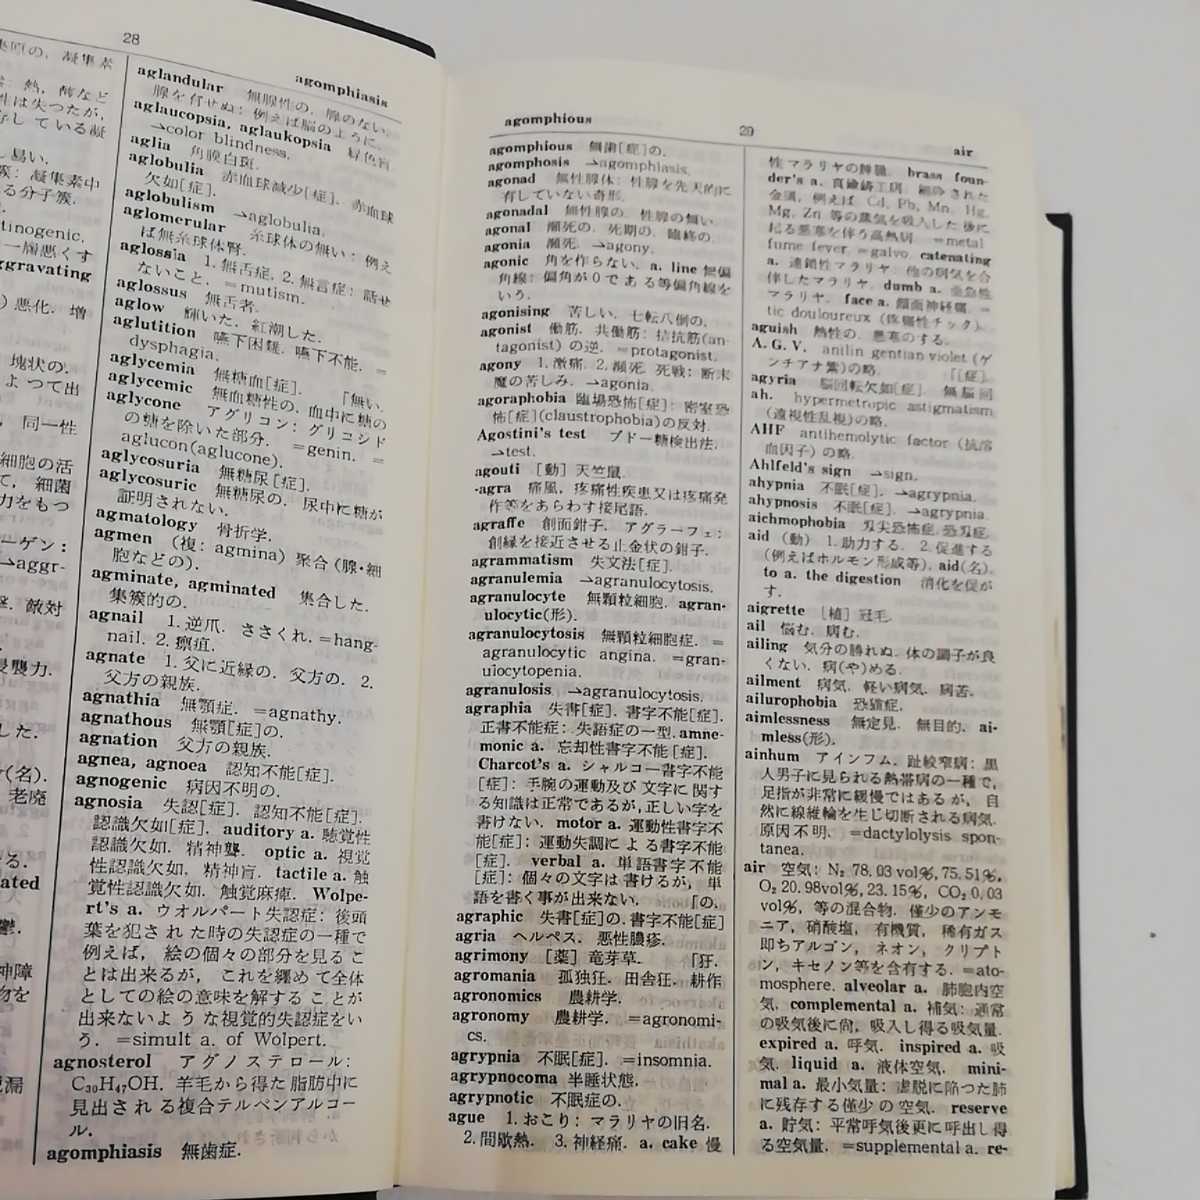 28
agomphiasis
aglandular 無腺性の, 腺のない,
aglaucopsia, aglaukopsia 緑色盲
→color blindness.
aglia 角膜白斑.
aglobulia 赤血球減少[症]. 赤血球
欠如[症].
aglobulism →aglobulia.
aglomerular 糸球体の無い: 例え
ば無糸球体腎.
aglossia 1. 無舌症. 2. 無言症: 話せ
ないこと. =mutism.
aglossus 無舌者.
aglow 輝いた. 紅潮した.
aglutition 嚥下困難. 嚥下不能. =
dysphagia.
aglycemia 無糖血[症]. 「無い.
aglycemic 無血糖性の. 血中に糖の
aglycone アグリコン: グリコシド
の糖を除いた部分. =genin. =
aglucon(aglucone).
aglycosuria 無糖尿[症].
aglycosuric 無糖尿の. 尿中に糖が
証明されない.
agmatology 骨折学.
agmen (複: agmina) 聚合 (腺・細
胞などの).
agminate, agminated 集合した.
集簇的の.
agnail 1. 逆爪. ささくれ. =hang-
nail. 2. 瘭疽.
agnate 1. 父に近縁の. 父方の. 2.
父方の親族.
agnathia 無顎症. =agnathy.
agnathous 無顎[症]の.
agnation 父方の親族.
agnea, agnoea 認知不能[症].
agnogenic 病因不明の.
agnosia 失認[症]. 認知不能[症].
認識欠如[症]. auditory a. 聴覚性
認識欠如. 精神聾. optic a. 視覚
性認識欠如. 精神盲. tactile a. 触
覚性認識欠如. 触覚麻痺. Wolpe-
rt's a. ウオルパート失認症: 後頭
葉を犯された時の失認症の一種で
例えば, 絵の個々の部分を見るこ
とは出来るが, これを纒めて全体
としての絵の意味を解することが
出来ないような視覚的失認症をい
う. =simult a. of Wolpert.
agnosterol アグノステロール:
C30H47OH. 羊毛から得た脂肪中に
見出される複合テルペンアルコー
ル.
agomphiasis 無歯症.
agomphious
29
air
agomphious 無歯[症]の.
agomphosis →agomphiasis.
agonad 無性腺体: 性腺を先天的に
有していない奇形.
agonadal 無性腺の. 性腺の無い.
agonal 瀕死の. 死期の. 臨終の.
agonia 瀕死. →agony.
agonic 角を作らない. a. line 無偏
角線: 偏角が0である等偏角線を
いう.
agonising 苦しい. 七転八倒の.
agonist 働筋. 共働筋: 拮抗筋(an-
tagonist) の逆. =protagonist.
agony 1. 激痛. 2. 瀕死. 死戦: 断末
魔の苦しみ. →agonia.
agoraphobia 臨場恐怖[症]: 密室恐
怖[症](claustrophobia)の反対.
Agostini's test ブドー糖検出法.
→test.
agouti [動] 天竺鼠.
-agra 痛風, 疼痛性疾患又は疼痛発
作等をあらわす接尾語.
agraffe 創面鉗子. アグラーフェ:
創縁を接近させる止金状の鉗子.
agrammatism 失文法[症].
agranulemia →agranulocytosis.
agranulocyte 無顆粒細胞. agran-
ulocytic(形).
agranulocytosis 無顆粒細胞症. =
agranulocytic angina. =gran-
ulocytopenia.
agranulosis →agranulocytosis.
agraphia 失書[症]. 書字不能[症].
正書不能症: 失語症の一型. amne-
monic a. 忘却性書字不能[症].
Charcot's a. シャルコー書字不能
[症]: 手腕の運動及び文字に関す
る知識は正常であるが, 正しい字を
書けない. motor a. 運動性書字不
能[症]: 運動失調による書字不能
[症]. verbal a. 単語書字不能
[症]: 個々の文字は書けるが, 単
語を書く事が出来ない. 「の.
agraphic 失書[症]の. 書字不能[症]
agria ヘルペス. 悪性膿疹.
agrimony [薬] 竜芽草. 「狂.
agromania 孤独狂. 田舎狂. 耕作
agronomics 農耕学.
agronomy 農耕学. =agronomi-
cs.
agrypnia 不眠[症]. =insomnia.
agrypnocoma 半睡状態.
agrypnotic 不眠症の.
ague 1. おこり: マラリヤの旧名.
2. 間歇熱. 3. 神経痛. a. cake 慢
性マラリヤの脾腫. brass foun-
der's a. 真鍮鋳工病.
金属, 例えば Cd, Pb, Mn, Hg,
Mg, Zn 等の蒸気を吸入した後に
起る悪寒を伴う高熱病. =metal
fume fever. =galvo. catenating
a. 連鎖性マラリヤ. 他の病気を合
併したマラリヤ. dumb a.
マラリヤ. face a. 顔面神経痛. =
tic douloureux (疼痛性チック).
aguish 熱性の. 悪寒のする.
A. G. V. anilin gentian violet (ゲ
ンチアナ紫)の略. 「[症].
agyria 脳回転欠如[症]. 無脳回
ah. hypermetropic astigmatism
(遠視性乱視)の略.
AHF antihemolytic factor (抗溶
血因子)の略.
Ahlfeld's sign →sign.
ahypnia 不眠[症]. →agrypnia.
ahypnosis 不眠[症]. →agrypnia.
aichmophobia 刄尖恐怖症. 恐刄症.
aid (動) 1. 助力する. 2. 促進する
(例えばホルモン形成等). aid(名).
to a. the digestion 消化を促が
す.
aigrette [植] 冠毛.
ail 悩む. 病む.
ailing 気分の勝れぬ. 体の調子が良
くない. 病(や)める.
ailment 病気. 軽い病気. 病苦.
ailurophobia 恐猫症.
aimlessness 無定見. 無目的. ai-
mless(形).
ainhum アインフム. 趾絞窄病: 黒
人男子に見られる熱帯病の一種で,
足指が非常に緩慢ではあるが, 自
然に線維輪を生じ切断される病気.
原因不明. =dactylolysis spon-
tanea.
air 空気: N2 78.03 vol%, 75.51%,
O2 20.98vol%, 23.15%, CO2 0.03
vol%, 等の混合物. 僅少のアンモ
ニア, 硝酸塩, 有機質, 稀有ガス
即ちアルゴン, ネオン, クリプト
ン, キセノン等を含有する. =ato-
mosphere. alveolar a. 肺胞内空
気. complemental a. 補気: 通常
の吸気後に尚, 吸入し得る吸気量.
expired a. 呼気. inspired a. 吸
気. liquid a. 液体空気. mini-
mal a. 最小気量: 虚脱に陥つた肺
に残存する僅少の空気. reserve
a. 貯気: 平常呼気後更に呼出し得
る空気量. =supplemental a. re-